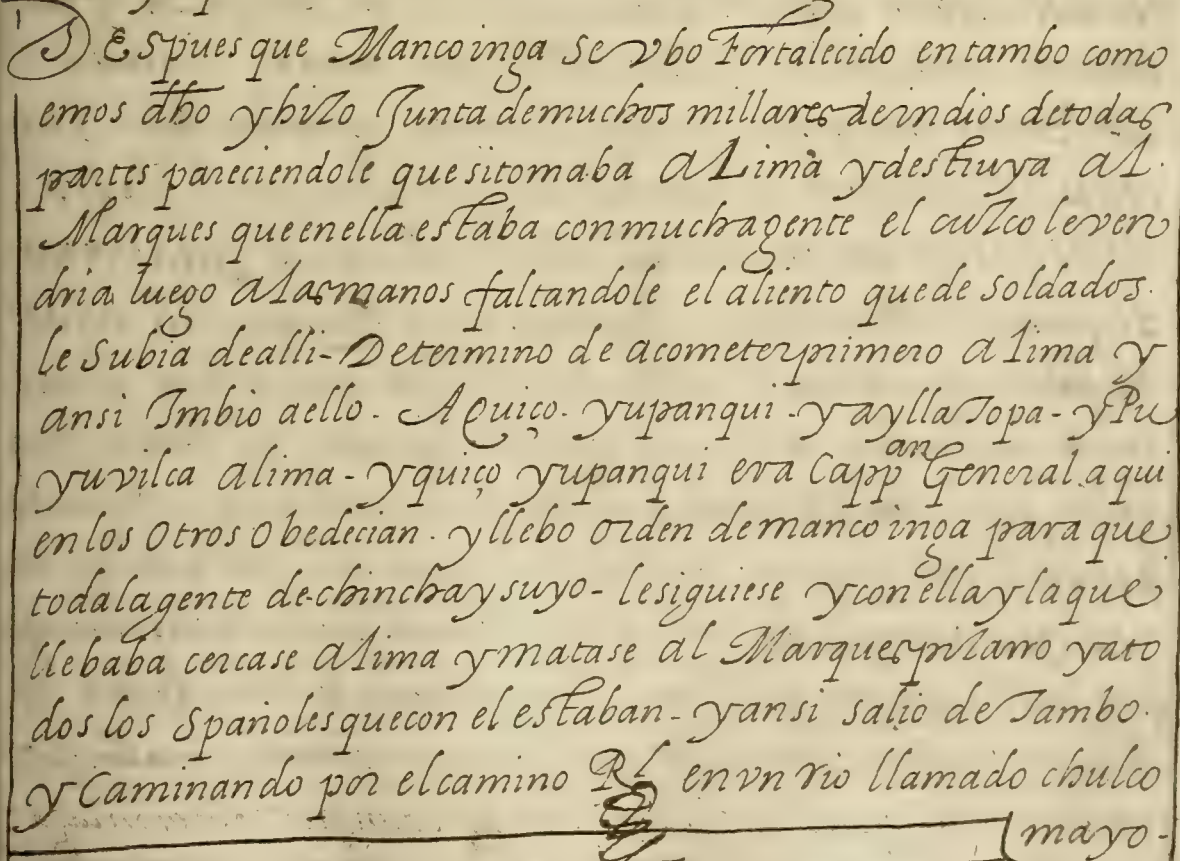 DEspues que Manco inga se vbo Fortalecido en tambo como
emos dho y hizo Junta de muchos millares de indios de todas
partes pareciendole que si tomaba a Lima y destruya al
Marques que en ella estaba con mucha gente el cuzco le ven
dria luego a las manos faltandole el aliento que de soldados.
le subia de alli - Determino de acometer primero a lima y
ansi Imbio a ello. A Quiço. yupanqui - y aylla Topa - y Pu
yuvilca a lima - y quiço yupanqui era Cappan General a qui
en los Otros Obedecian. y llebo orden de manco inga para que
toda la gente de chinchaysuyo - le siguiese y con ella y la que
llebaba cercase a lima y matase al Marques pizarro y a to
dos los Spañoles que con el estaban - y ansi salio de Tambo.
y Caminando por el camino Rl en vn rio llamado chulco
mayo -